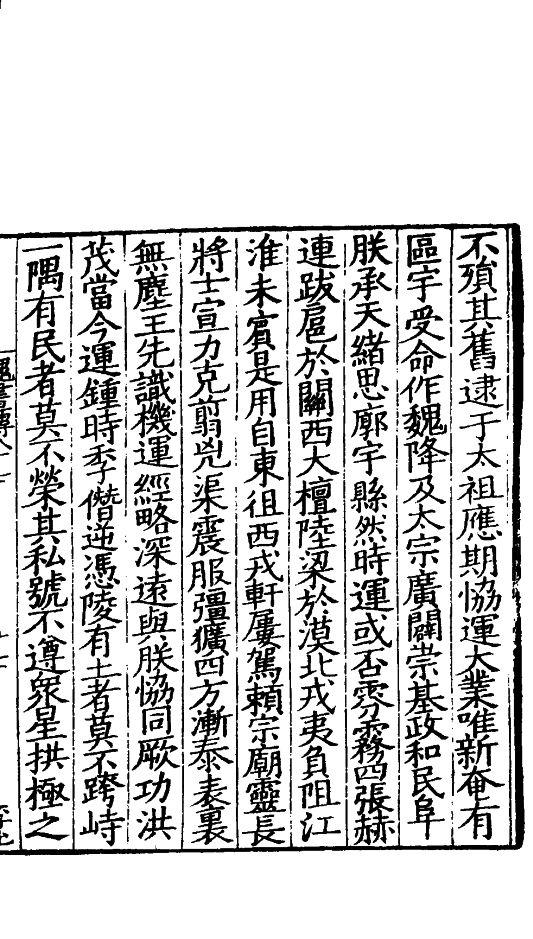 不殞其舊逮于太祖應期協運大業唯新奄有
區宇受命作魏降及太宗廣闢崇基政和民阜
朕承天緒思廓宇縣然時運或否雰霧四張赫
連跋扈於關西大檀陸梁於漠北戎夷負阻江
淮未賓是用自東徂西戎軒屢駕賴宗廟靈長
將士宣力克翦兇渠震服彊獷四方漸泰表裏
無塵王先識機運經略深遠與朕協同厥功洪
茂當今運鍾時季僭逆憑陵有土者莫不跨峙
一隅有民者莫不榮其私號不遵衆星拱極之